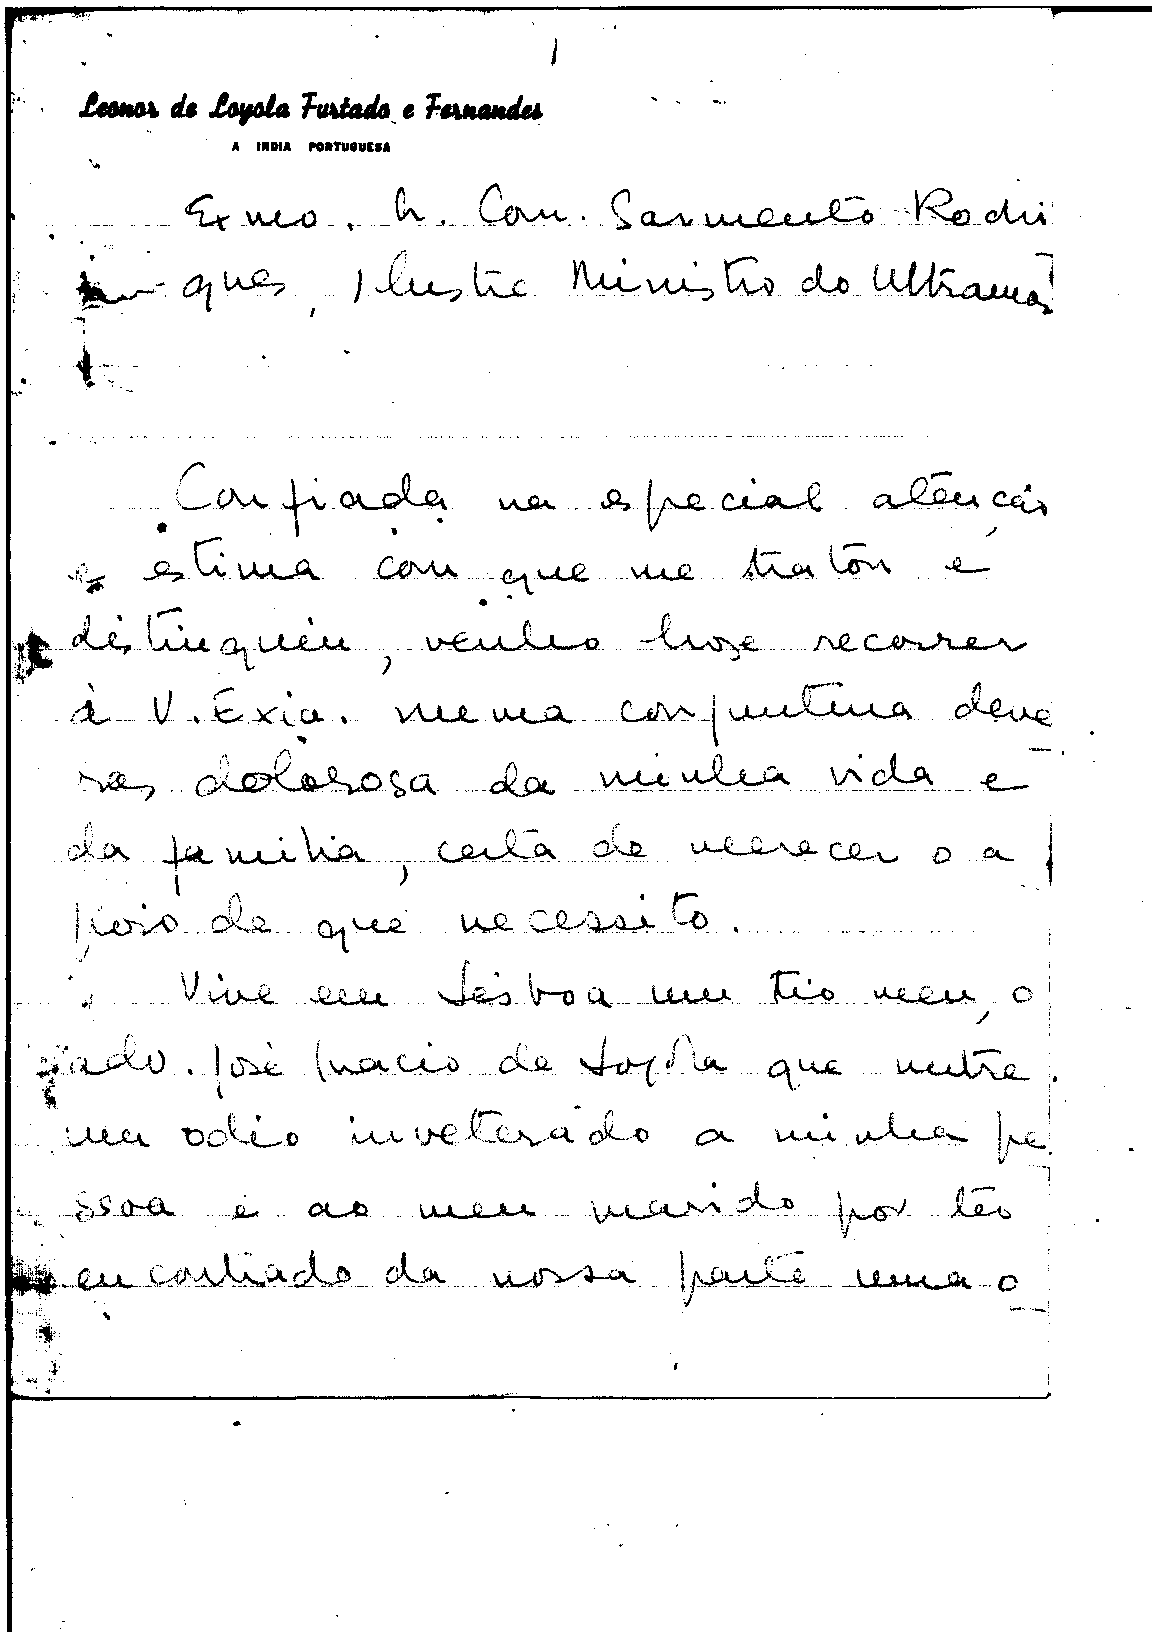 1
Leonor de Loyola Furtado e Fernandes
A INDIA PORTUGUESA
Exmo. Sr. Com. Sarmento Rodri
gues, Ilustre Ministro do Ultramar
Confiada na especial atenção
e estima com que me tratou e
distinguiu, venho hoje recorrer
à V. Exia. numa conjuntura deve
ras dolorosa da minha vida e
da familia, certa de merecer o a
poio de que necessito.
Vive em Lisboa um tio meu, o
adv. José Inacio de Loyola que nutre
um odio inveterado a minha pe
ssoa e ao meu marido por ter
encontrado da nossa parte uma o